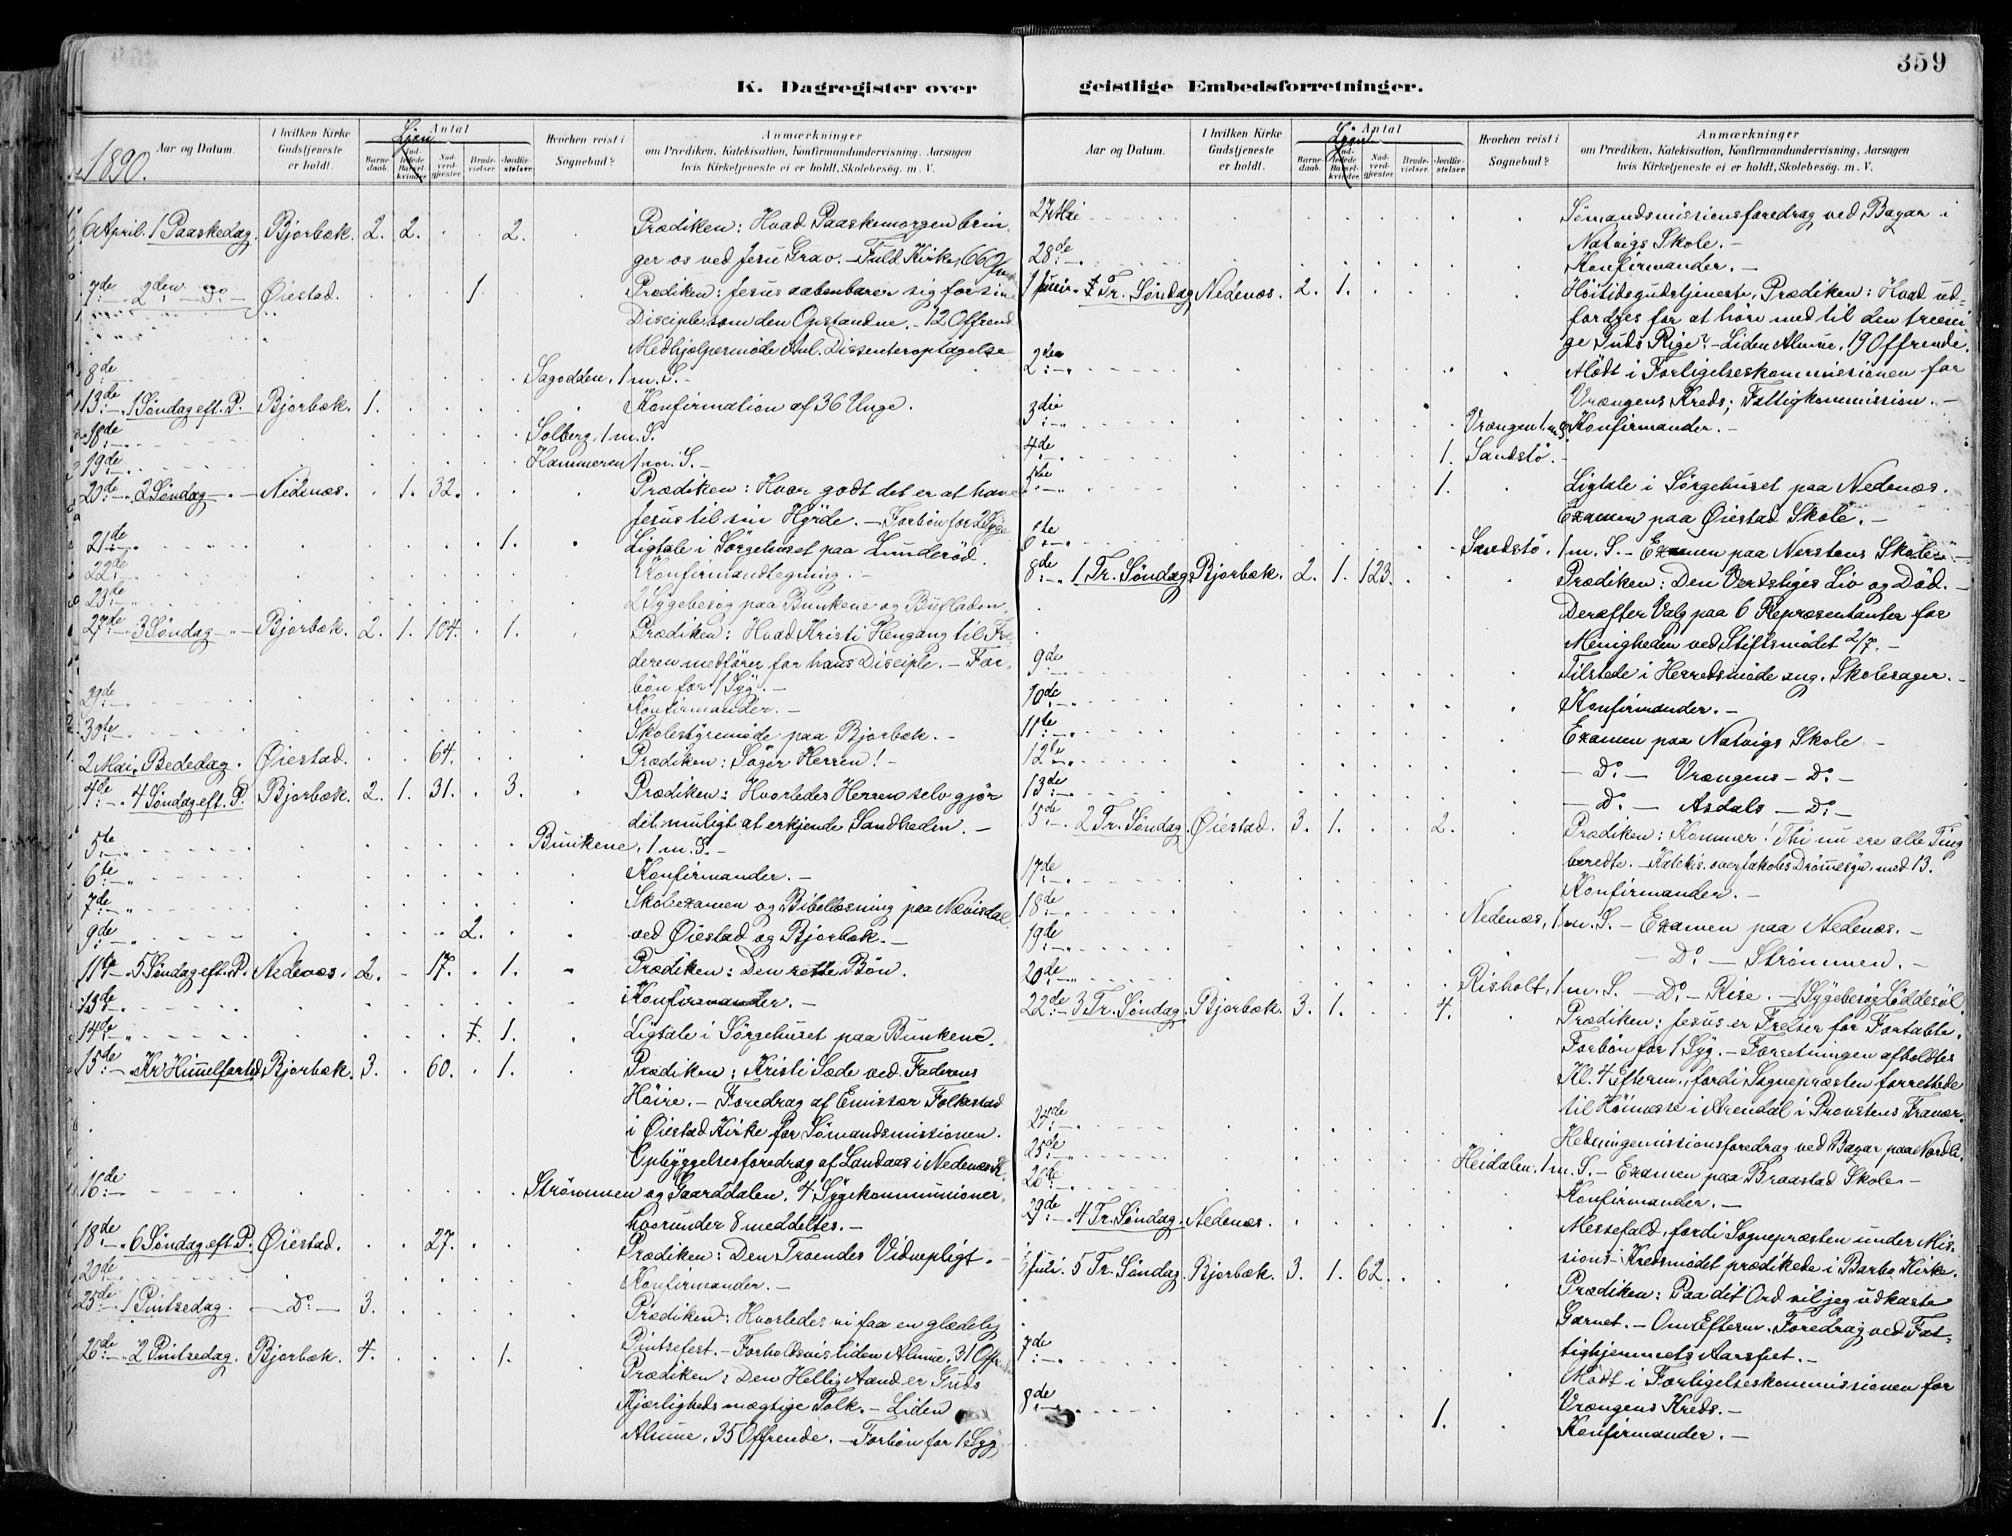 359
K. Dagregister over
geistlige Embedsforretninger.
1890.
Aar og Datum.
I hvilken Kirke Gudstjeneste er holdt.
Antal
Barnedaab.
Indledede Barselkvinder.
Nadverdgjester
Brudevielser.
Jordfæstelser.
Hvorhen reist i Sognebud?
Anmærkninger
om Prædiken, Katekisation, Konfirmandundervisning, Aarsagen
hvis Kirketjeneste ei er holdt, Skolebesøg, m. V.
6 April. 1 Paaskedag. Bjorbæk. 2. 2. 2. Prædiken: Hvad Paaskemorgen brin-
ger os ved Jesu Grav. - Fuld Kirke,
7de 2den Do Øiestad. 1 Prædiken: Jesus aabenbarer sig for sine
Disciple som den Opstandne. - 12 Offrend.
Medhjælpermøde Anl. Dissenteroptagelse
8de Sagodden, 1 m. S.-
13de 1 Søndag eft. P. Bjorbæk. 1. Konfirmation af 36 Unge.
18de Solberg, 1 m. S.
19de Kammeren 1 m. S.-
20de 2 Søndag Nedenæs. 1. 32. Prædiken: Hvor godt det er at have
Jesus til sin Hyrde. - Forbøn for 2 Syge
21de 1. Ligtale i Sørgehuset paa Lunderød.
22de Konfirmandtegning.-
23de 2 Sygebesøg paa Bunkene og Bufladen.
27de 3 Søndag Bjorbæk. 2. 1. 104. 1. Prædiken: Hvad Kristi Hengang til Fa-
deren medfører for hans Disciple. - For-
bøn for 1 Syg.-
29de Konfirmander.-
30te Skolestyremøde paa Bjorbæk.-
2 Mai. Bededag. Øiestad. 64. Prædiken: Søger Herren!-
4de 4 Søndag eft. P. Bjorbæk. 2. 1. 31. 3. Prædiken: Hvorledes Herren selv gjør
det muligt at erkjende Sandheden.-
5te Bunkene, 1 m. S.-
6te Konfirmander.-
7de Skolexamen og Bibellæsning paa Nævisdal
9de 2. ved Øiestad og Bjorbæk.-
11te 5 Søndag eft. P. Nedenæs. 2. 17. 1. Prædiken: Den rette Bøn.
13de Konfirmander.-
14de 1. Ligtale i Sørgehuset paa Bunkene.
15de Kr Himmelfartsd. Bjorbæk. 3. 60. 1. Prædiken: Kristi Sæde ved Faderens
Høire. - Foredrag af Emissær Folkestad
i Øiestad Kirke for Sømandsmissionen.
Opbyggelsesforedrag af Landaas i Nedenæs K.
16de Strømmen og Gaarddalen, 4 Sygekommunioner,
hvorunder 8 meddeltes.-
18de 6 Søndag eft. P. Øiestad. 27. Prædiken: Den Troendes Vidnepligt.-
20de Konfirmander.-
25de 1 Pintsedag. Do 3. Prædiken: Hvorledes vi faa en glædelig
Pintsefest. - Forholdsvis liden Almue, 31 Offr.
26de 2 Pintsedag. Bjorbæk. 4. 1. Prædiken: Den Hellig Aand er Guds
Kjærligheds mægtige Tolk. - Liden
Almue, 35 Offrende. - Forbøn for 1 Syg
Aar og Datum.
I hvilken Kirke Gudstjeneste er holdt.
Antal
Barnedaab.
Indledede Barselkvinder.
Nadverdgjester
Brudevielser.
Jordfæstelser.
Hvorhen reist i Sognebud?
Anmærkninger
om Prædiken, Katekisation, Konfirmandundervisning, Aarsagen
hvis Kirketjeneste ei er holdt, Skolebesøg, m. V.
27 Mai Sømandsmissionsforedrag ved Bazar i
Natvigs Skole.-
28de Konfirmander.-
1 Juni. Tr. Søndag Nedenæs. 2. 1. Høitidsgudstjeneste, Prædiken: Hvad ud-
fordres for at høre med til den treeni-
ge Guds Rige? - Liden Almue, 19 Offrende.
2den Mødt i Forligelseskommissionen for
Vrængens Kreds; Fattigkommission.-
3die Vrængen 1 m. S. Konfirmander.-
4de 1. Sandstø.-
5te 1. Ligtale i Sørgehuset paa Nedenæs.
Examen paa Øiestad Skole.-
6te Sandstø. 1 m. S.- Examen paa Nerstens Skole.-
8de 1 Tr. Søndag Bjorbæk. 2. 1. 123. Prædiken: Den Vertsliges Liv og Død.-
Derefter Valg paa 6 Repræsentanter for
Menigheden ved Stiftsmødet 2/7.-
9de Tilstede i Herredsmøde ang. Skolesager.-
10de Konfirmander.-
11te Examen paa Natvigs Skole-
12te -Do- Vrængens -Do-
13de -Do- Asdals -Do-
15de 2 Tr. Søndag. Øiestad. 3. 1. 2. Prædiken: Kommer! Thi nu ere alle Ting
beredte. - Katekis. over Jakobs Drømmesyn, med 13.
17de Konfirmander.-
18de Nedenæs, 1 m. S.- Examen paa Nedenæs.-
19de -Do- Strømmen.-
20de Risholt, 1 m. S. -Do- Rise.- 1 Sygebesøg Løddesøl.
22de 3 Tr. Søndag. Bjorbæk. 3. 1. 4. Prædiken: Jesus er Frelser for Fortabte.
Forbøn for 1 Syg. - Forretningen afholdtes
Kl. 4 Efterm., fordi Sognepræsten forrettede
til Høimesse i Arendal i Provstens Fravær.
24de Hedningemissionsforedrag ved Bazar paa Nordli.
25de Heidalen, 1 m. S.- Examen paa Braastad Skole-
26de Konfirmander.-
29de 4 Tr. Søndag. Nedenæs. Messefald, fordi Sognepræsten under Mis-
sions-Kredsmødet prædikede i Barbo Kirke.
6 Juli. 5 Tr. Søndag. Bjorbæk. 3. 1. 62. Prædiken: Paa dit Ord vil jeg udkaste
Garnet. - Om Efterm. Foredrag ved Fat-
tighjemmets Aarsfest.-
7de Mødt i Forligelseskommissionen for
Vrængens Kreds.-
8de 1. Konfirmander.-